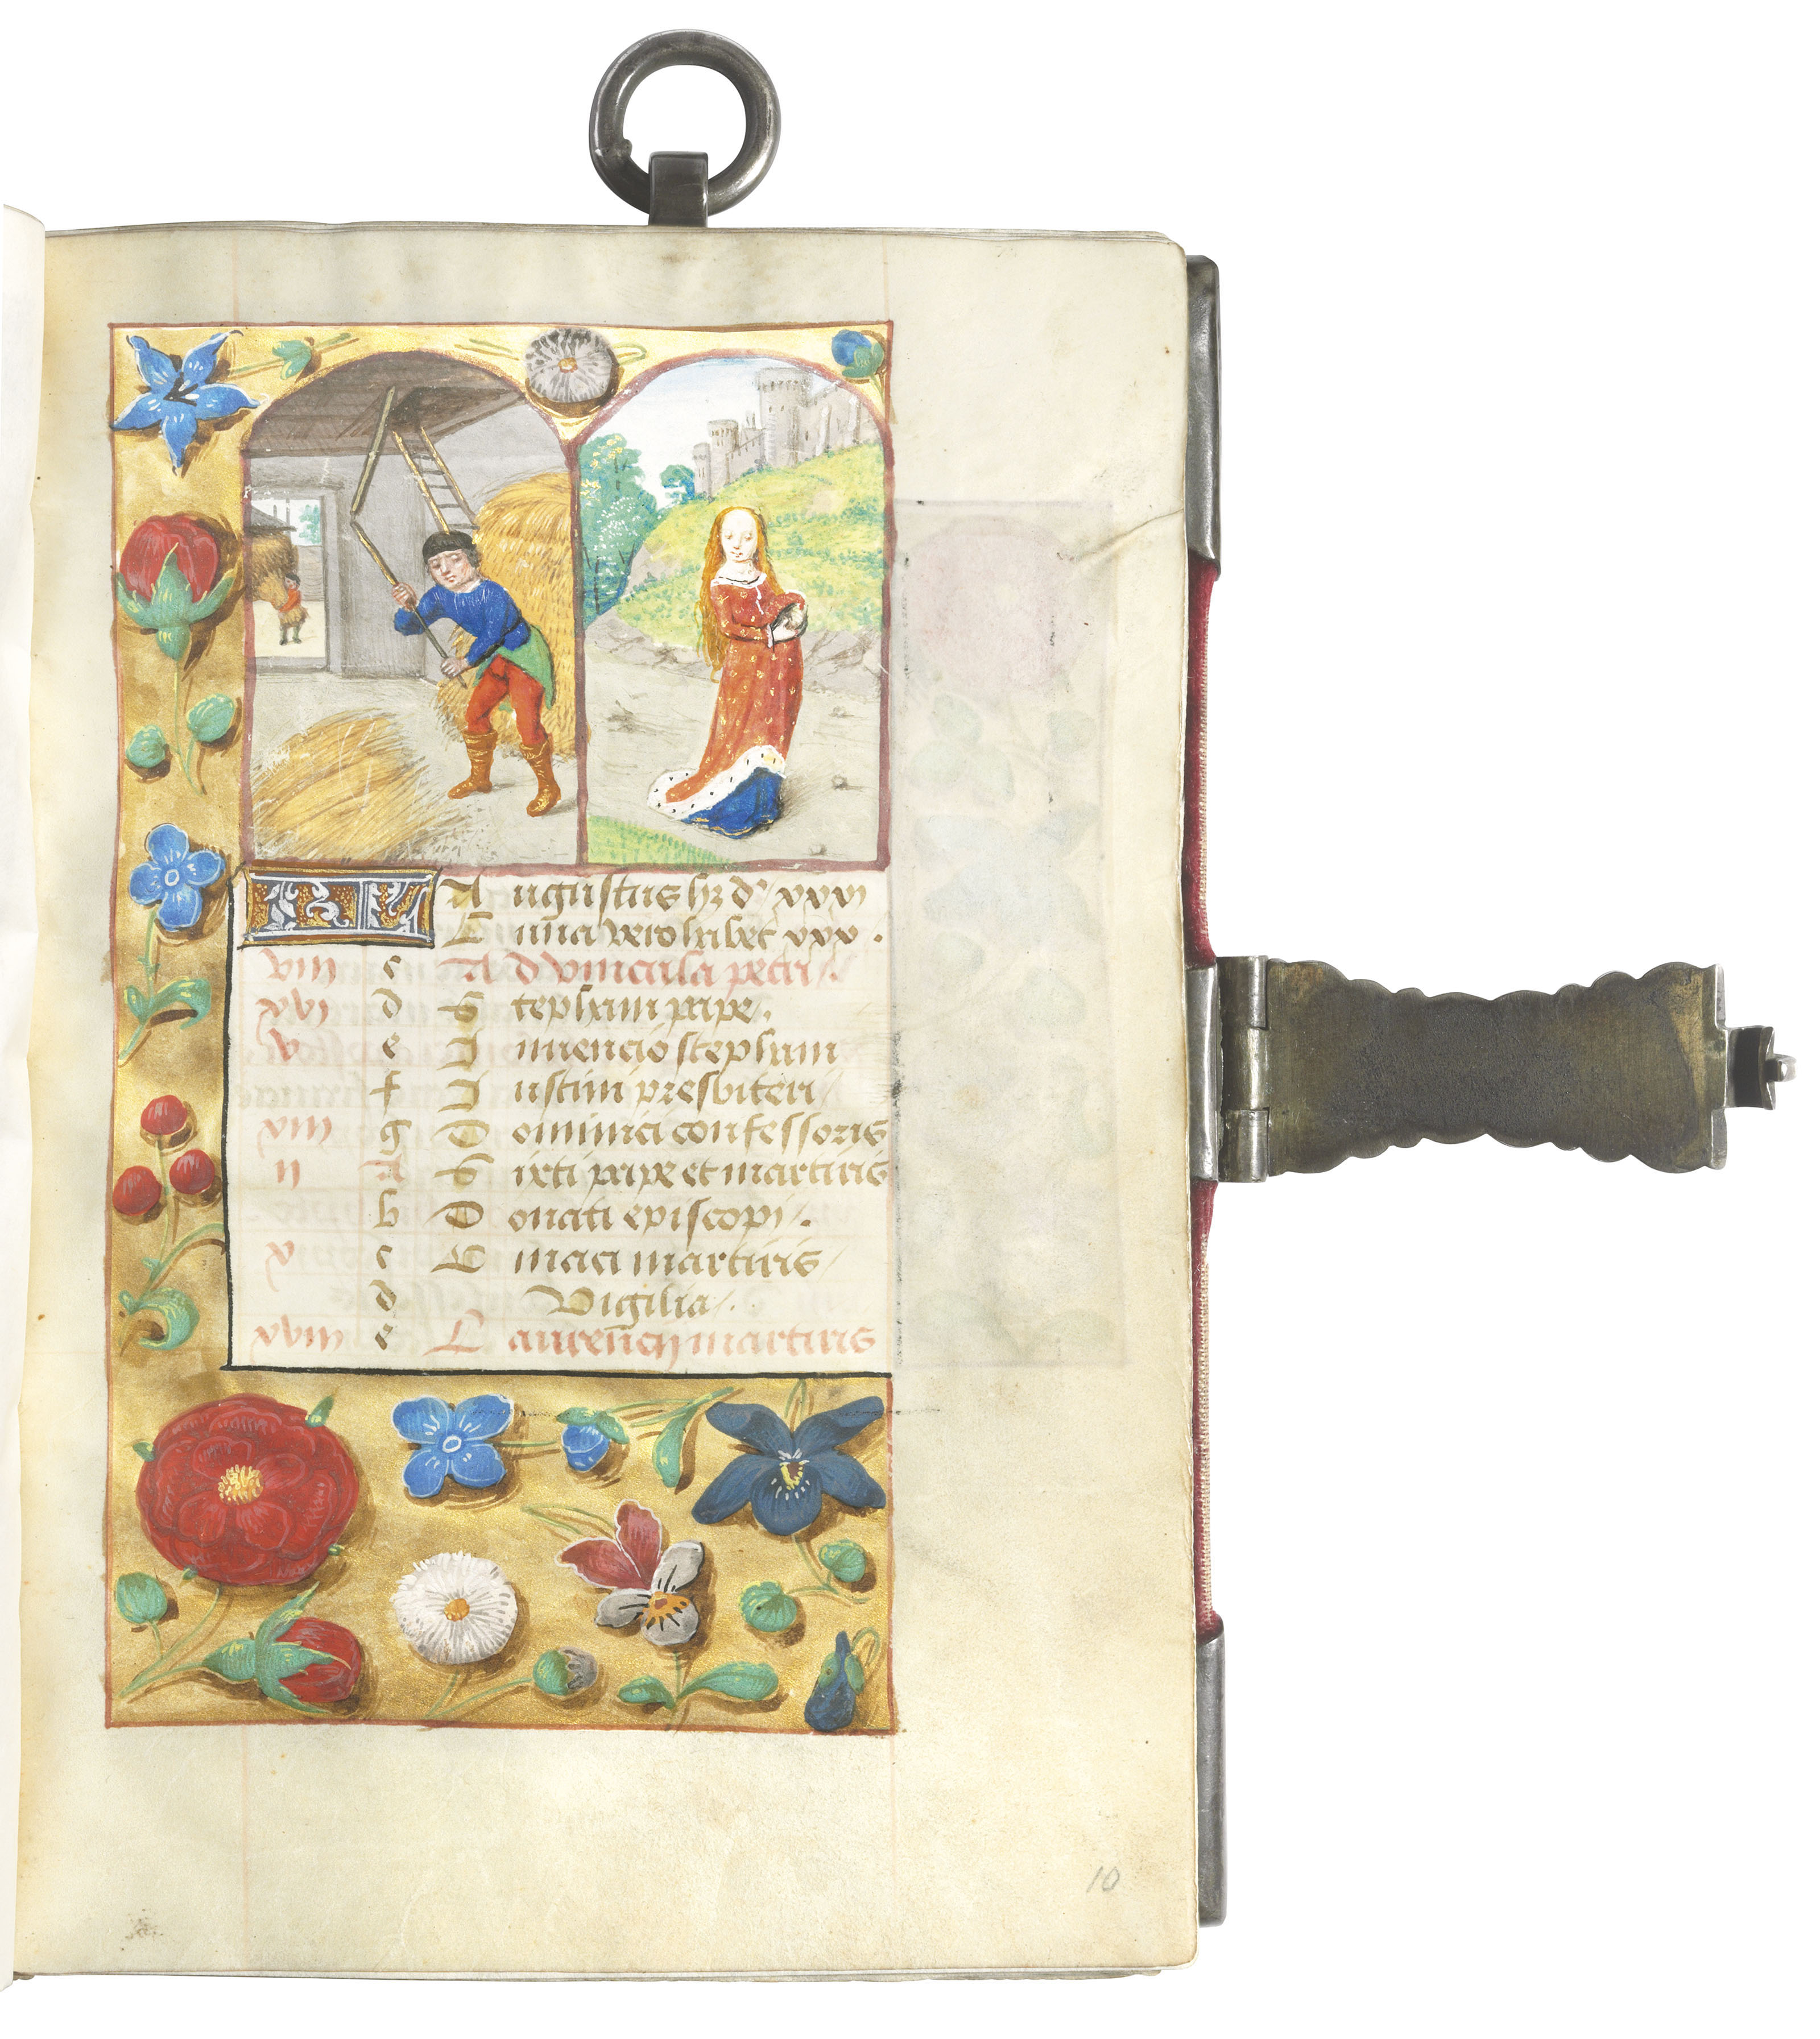 KL Augustus hȝ dˢ xxxi
Luna vero habet xxx.
viii c Ad vincula petri.
xvi d Stephani pape.
v e Inuencio stephani
f Iustini presbiteri
xiii g Dominici confessoris
ii A Sixti pape et martiris
b Donati episcopi.
x c Ciriaci martiris
d Vigilia.
xviii e Laurencij martiris
10